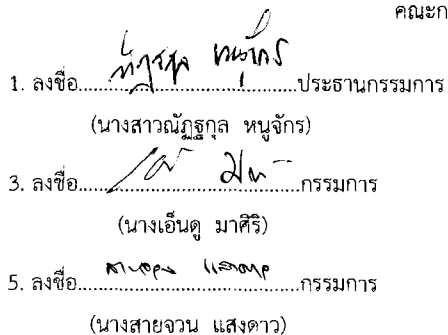 คณะก
1. ลงชื่อ ณัฏฐกุล หนูจักร ประธานกรรมการ
(นางสาวณัฏฐกุล หนูจักร)
3. ลงชื่อ กรรมการ
(นางเอ็นดู มาศิริ)
5. ลงชื่อ สายจวน แสงดาว กรรมการ
(นางสายจวน แสงดาว)